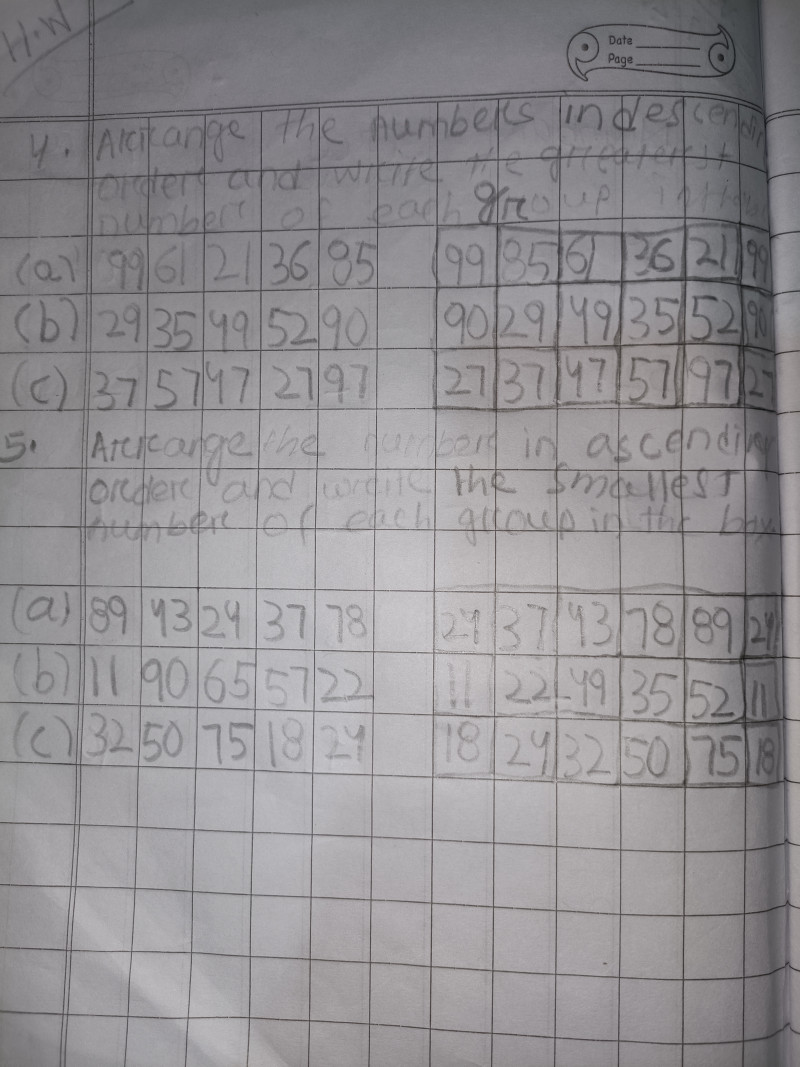 H.W
Date
Page
4. Arrange the numbers in descendin
order and write the greaterst
number of each group in the
(a) 99 61 21 36 85 99 85 61 36 21 99
(b) 29 35 49 52 90 90 29 49 35 52 90
(c) 37 57 47 27 97 27 37 47 57 97 27
5. Arrange the number in ascending
order and write the smallest
number of each group in the box
(a) 89 43 24 37 78 24 37 43 78 89 24
(b) 11 90 65 57 22 11 22 49 35 52 11
(c) 32 50 75 18 24 18 24 32 50 75 18